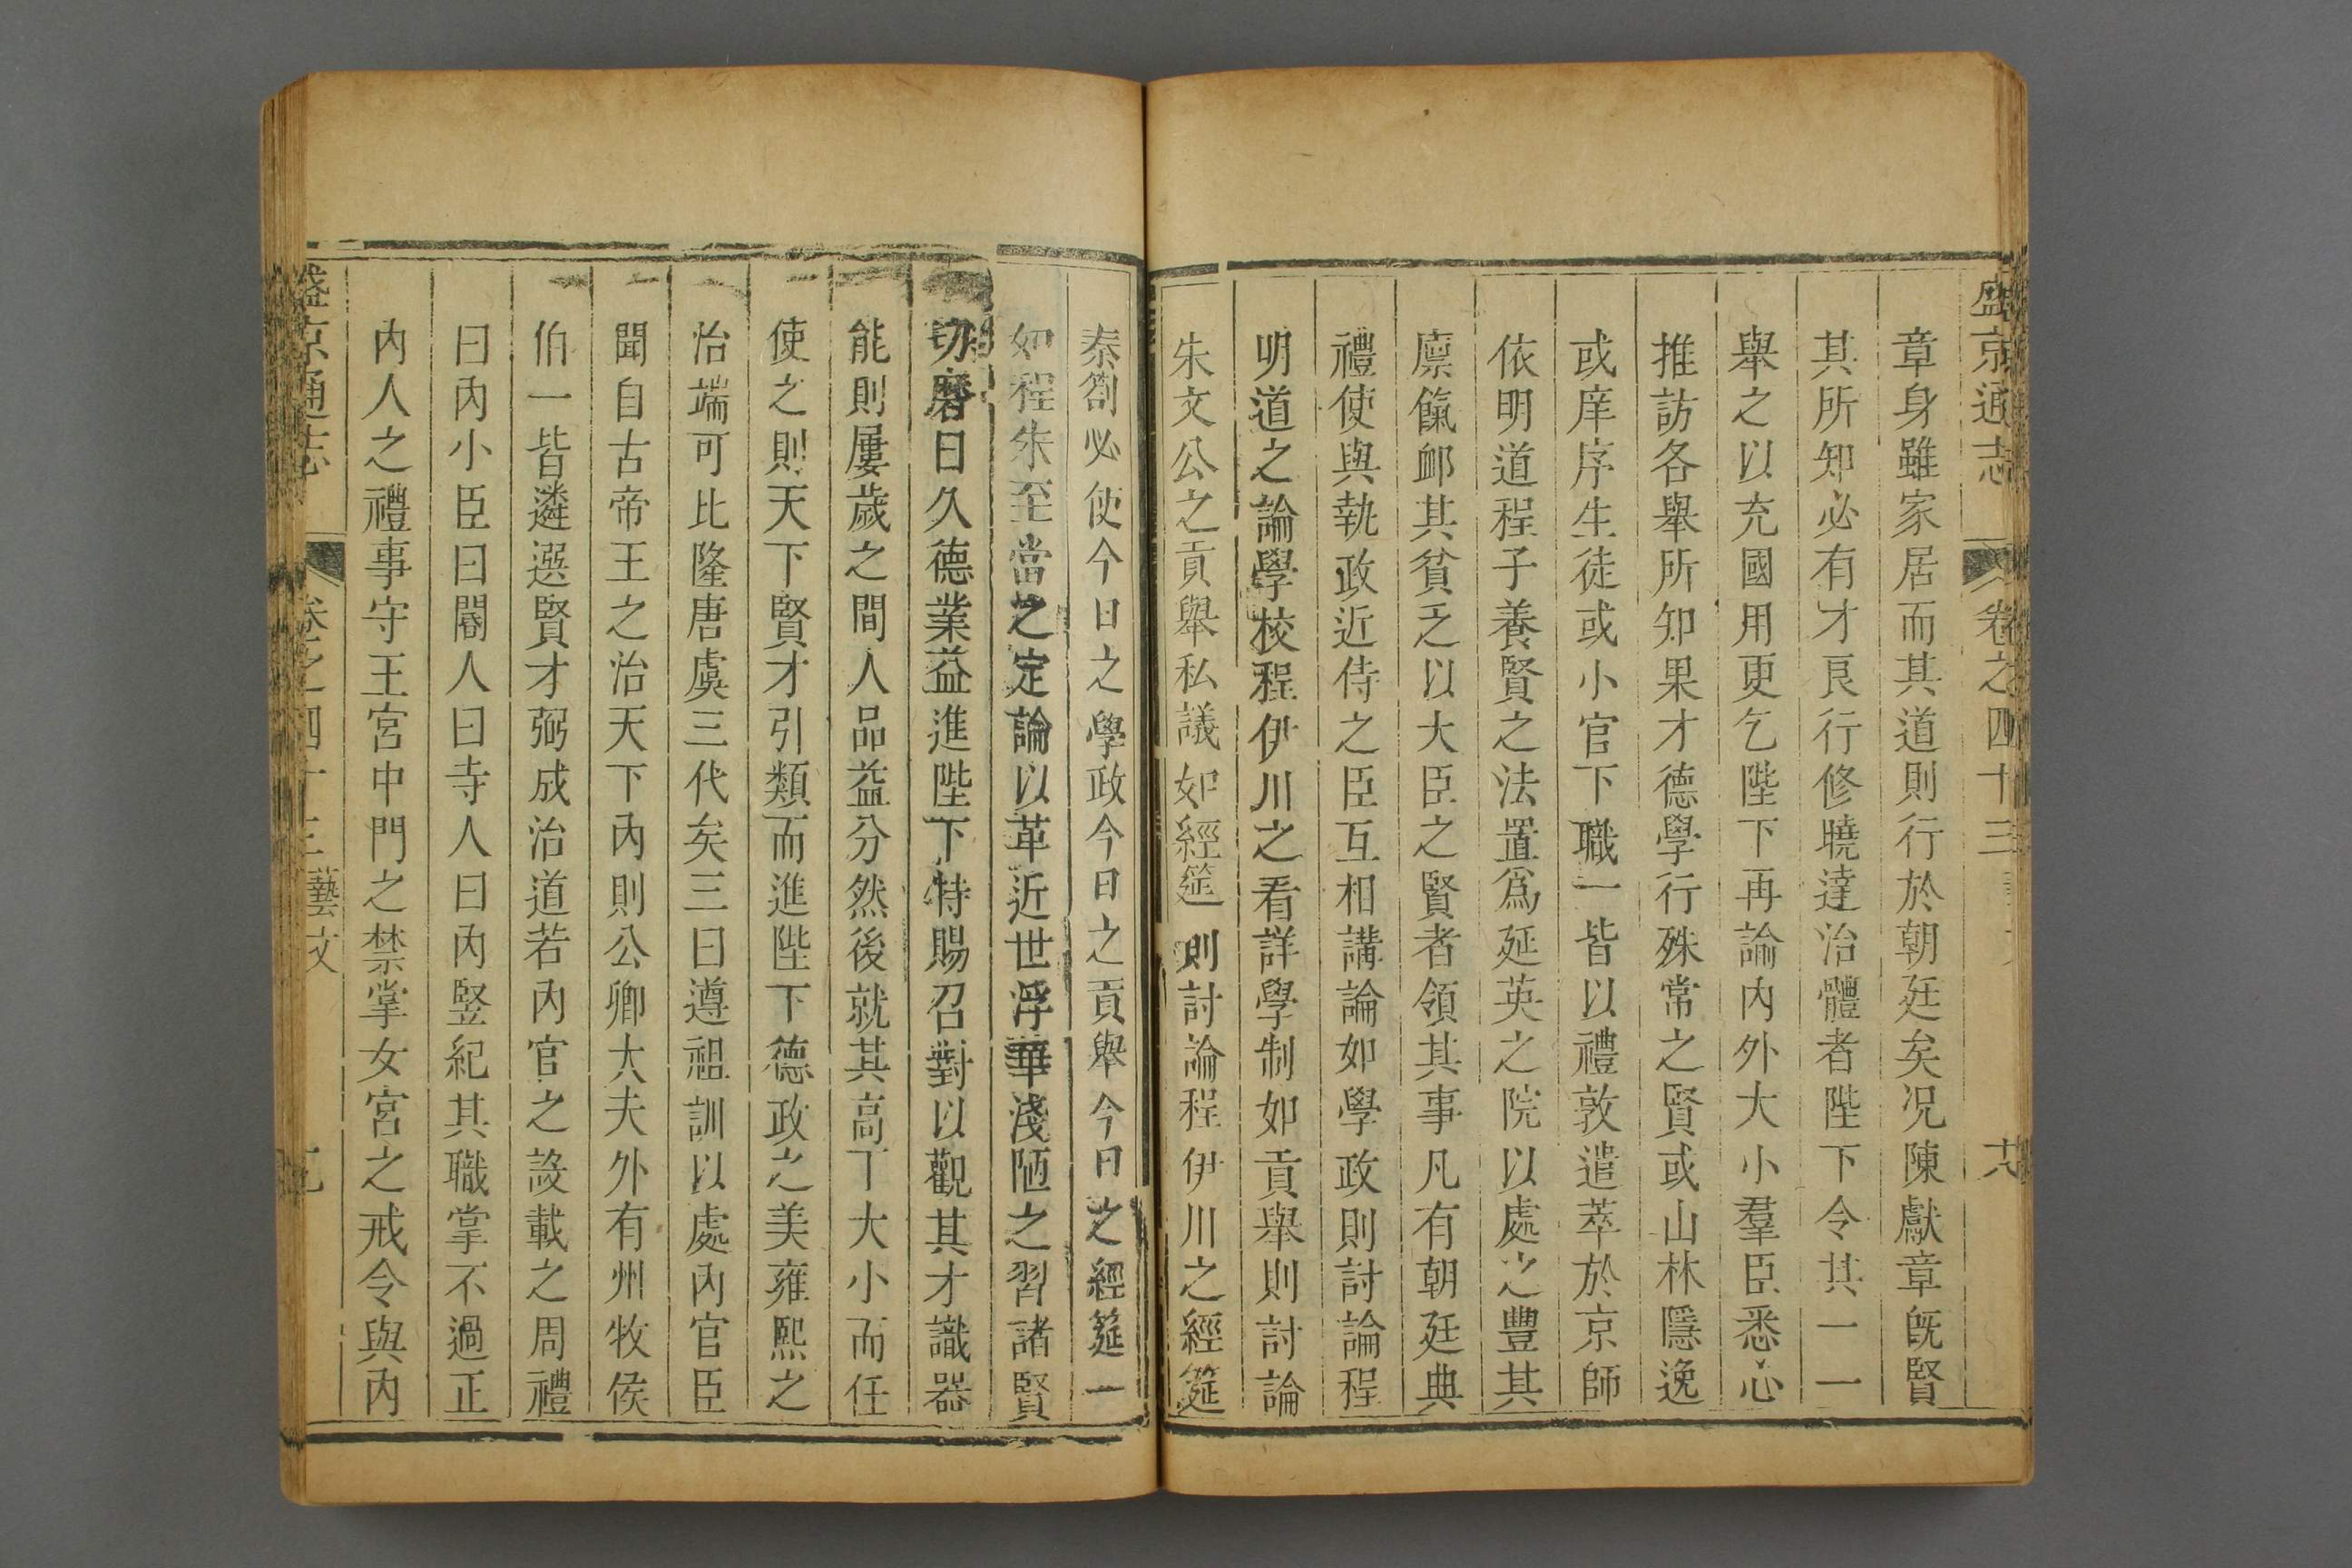 盛京通志 卷之四十三 十八
章身雖家居而其道則行於朝廷矣况陳獻章旣賢
其所知必有才良行修曉達治體者陛下令其一一
舉之以充國用更乞陛下再論内外大小羣臣悉心
推訪各舉所知果才德學行殊常之賢或山林隱逸
或庠序生徒或小官下職一皆以禮敦遣萃於京師
依明道程子養賢之法置爲延英之院以處之豐其
廪餼䘏其貧乏以大臣之賢者領其事凡有朝廷典
禮使與執政近侍之臣互相講論如學政則討論程
明道之論學校程伊川之看詳學制如貢舉則討論
朱文公之貢舉私議如經筵則討論程伊川之經筵
奏劄必使今日之學政今日之貢舉今日之經筵一
如程朱至當之定論以革近世浮華淺陋之習諸賢
切磨日久德業益進陛下特賜召對以觀其才識器
能則屢歲之間人品益分然後就其高下大小而任
使之則天下賢才引類而進陛下德政之美雍熙之
治端可比隆唐虞三代矣三曰遵祖訓以處内官臣
聞自古帝王之治天下内則公卿大夫外有州牧侯
伯一皆遴選賢才弼成治道若内官之設載之周禮
曰内小臣曰閽人曰寺人曰内竪紀其職掌不過正
内人之禮事守王宮中門之禁掌女宮之戒令與内
盛京通志 卷之四十三 藝文